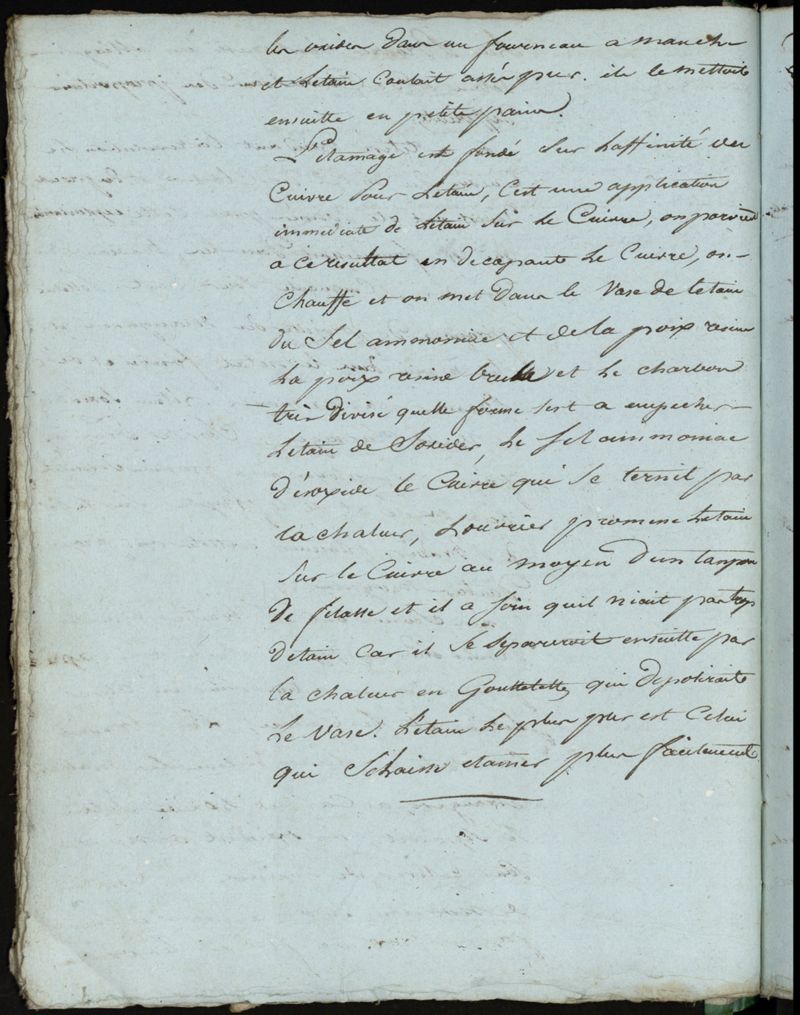 les oxides dans un fourneau a manche
et Letain Coulait assés pur. ils le mettoit
ensuitte en petits pains.
L'etamage est fondé Sur Laffinité du
Cuivre Pour Letain, C'est une application
immediate de Letain Sur Le Cuivre, on parvient
a Ce resultat en decapants Le Cuivre, on
Chauffe et on met Dans le Vase de letain
du Sel ammoniac et de la poix resine
La poix resine brule et Le charbon
très divisé quelle forme sert a empecher
Letain de Soxider, Le Sel ammoniac
Désoxide le Cuivre qui Se ternit par
la chaleur, Louvrier promene Letain
Sur le Cuivre au moyen Dun tampon
De filasse et il a Soin quil niait pas trop
detain Car il Se Separeroit ensuitte par
la chaleur en Gouttelettes qui depoliraits
Le Vase. Létain Le plus pur est Celui
qui Se Laisse etamer plus facilement.